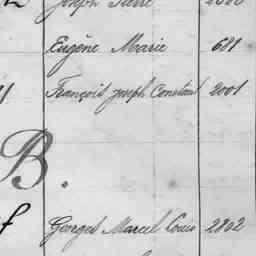 Joseph Pierre 2000
Eugène Marie 611
François Joseph Constant 2001
B.
f Georges Marcel Louis 2802